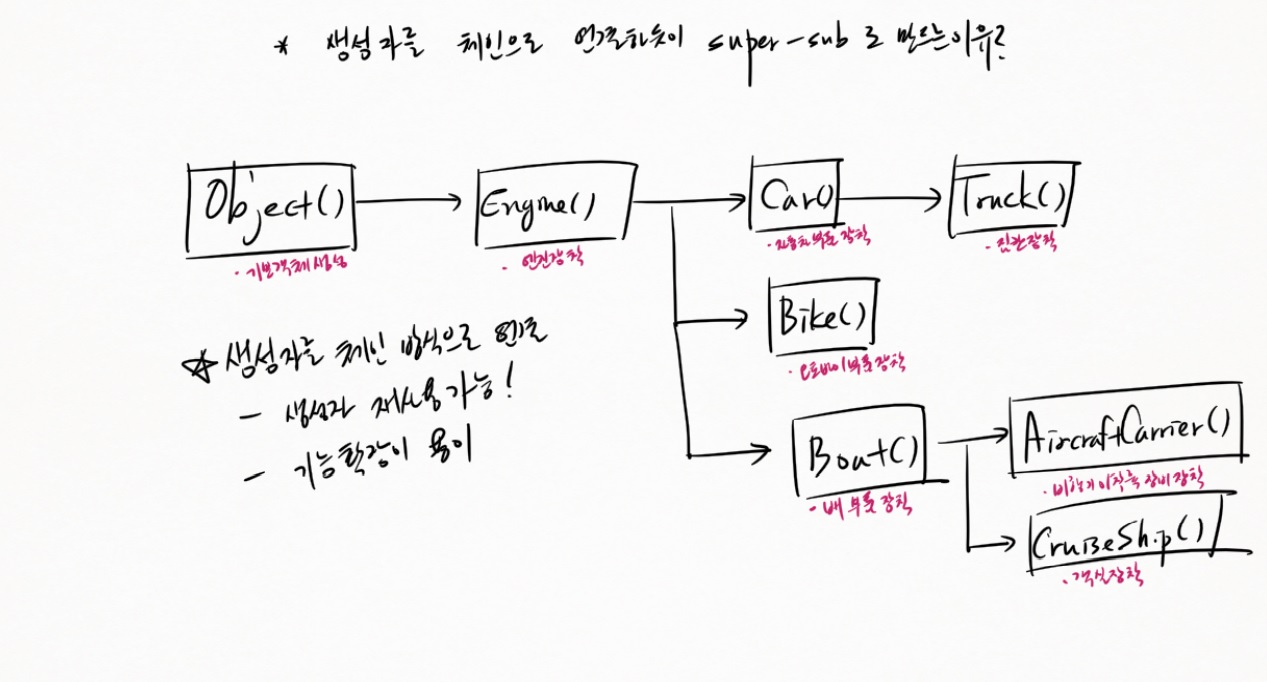 * 생성자를 체인으로 연결하듯이 super-sub 로 만드는이유?
Object()
· 기본객체생성
Engine()
· 엔진장착
Car()
· 자동차부품 장착
Truck()
· 짐칸장착
Bike()
· 오토바이부품장착
Boat()
- 배 부품 장착
AircraftCarrier()
· 비행기 이착륙 장비 장착
CruiseShip()
· 객실장착
☆ 생성자를 체인 방식으로 연결
- 생성자 재사용가능!
- 기능확장이 용이